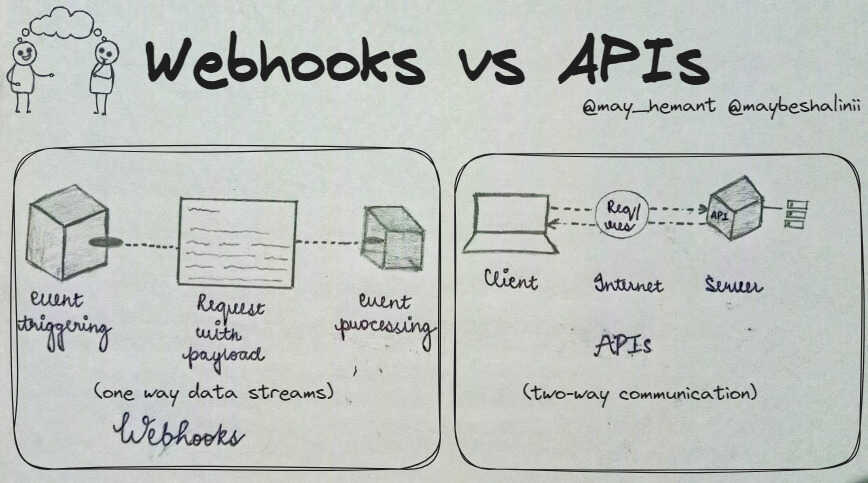 Webhooks vs APIs
@may_hemant @maybeshalinii
event
triggering
Request
with
payload
event
processing
(one way data streams)
Webhooks
Req/
res
API
Client
Internet
Server
APIs
(two-way communication)